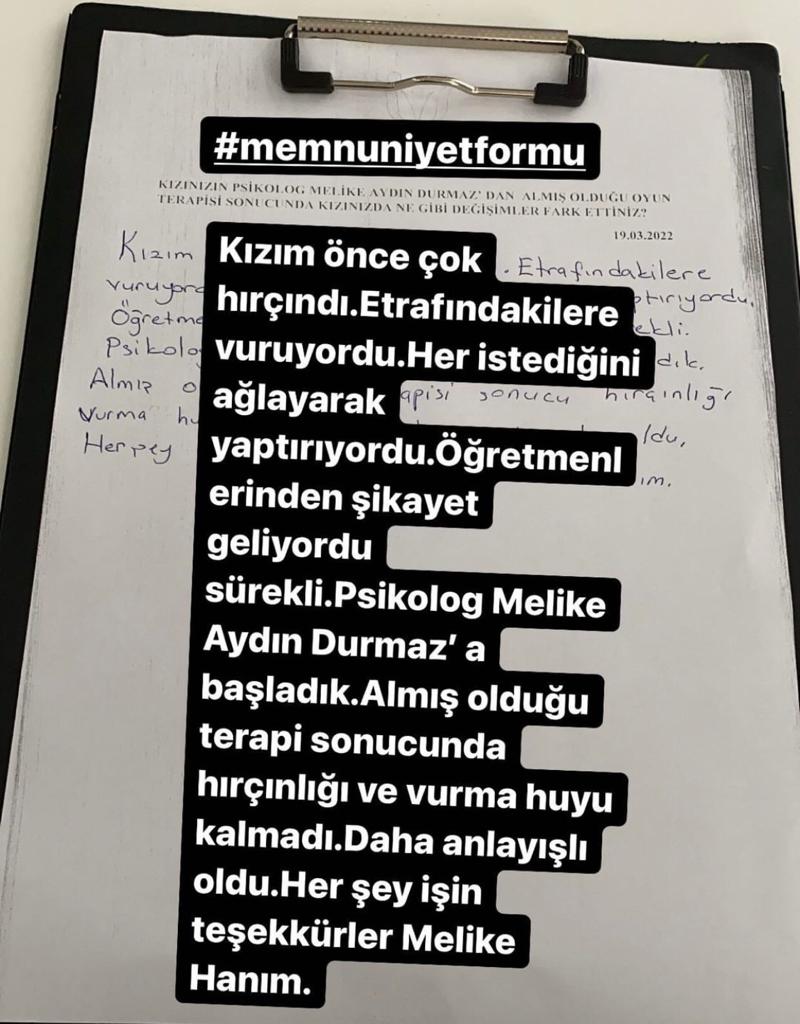 #memnuniyetformu
KIZINIZIN PSİKOLOG MELİKE AYDIN DURMAZ' DAN ALMIŞ OLDUĞU OYUN
TERAPİSİ SONUCUNDA KIZINIZDA NE GİBİ DEĞİŞİMLER FARK ETTİNİZ?
19.03.2022
Kızım . Etrafındakilere
ptırıyordu.
ekli.
dık.
Almış apisi sonucu hırçınlığı
vurma ldu,
Herşey ım.
Kızım önce çok
hırçındı.Etrafındakilere
vuruyordu.Her istediğini
ağlayarak
yaptırıyordu.Öğretmenl
erinden şikayet
geliyordu
sürekli.Psikolog Melike
Aydın Durmaz' a
başladık.Almış olduğu
terapi sonucunda
hırçınlığı ve vurma huyu
kalmadı.Daha anlayışlı
oldu.Her şey işin
teşekkürler Melike
Hanım.